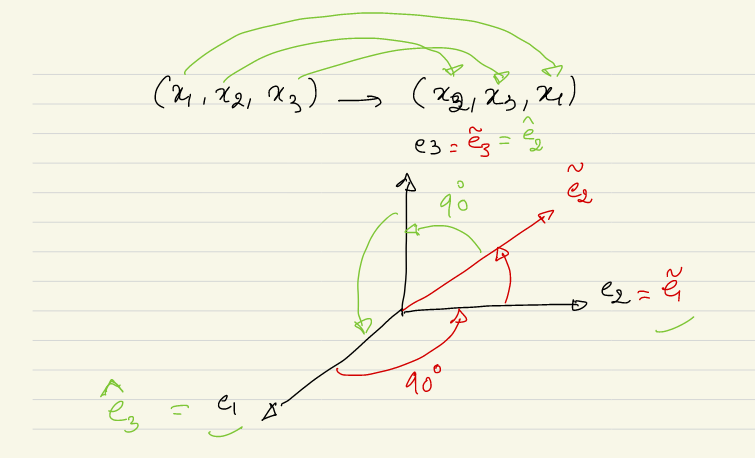 (x₁, x₂, x₃) → (x₂, x₃, x₁)
e₃ = ẽ₃ = ê₂
90°
ẽ₂
e₂ = ẽ₁
90°
ê₃ = e₁